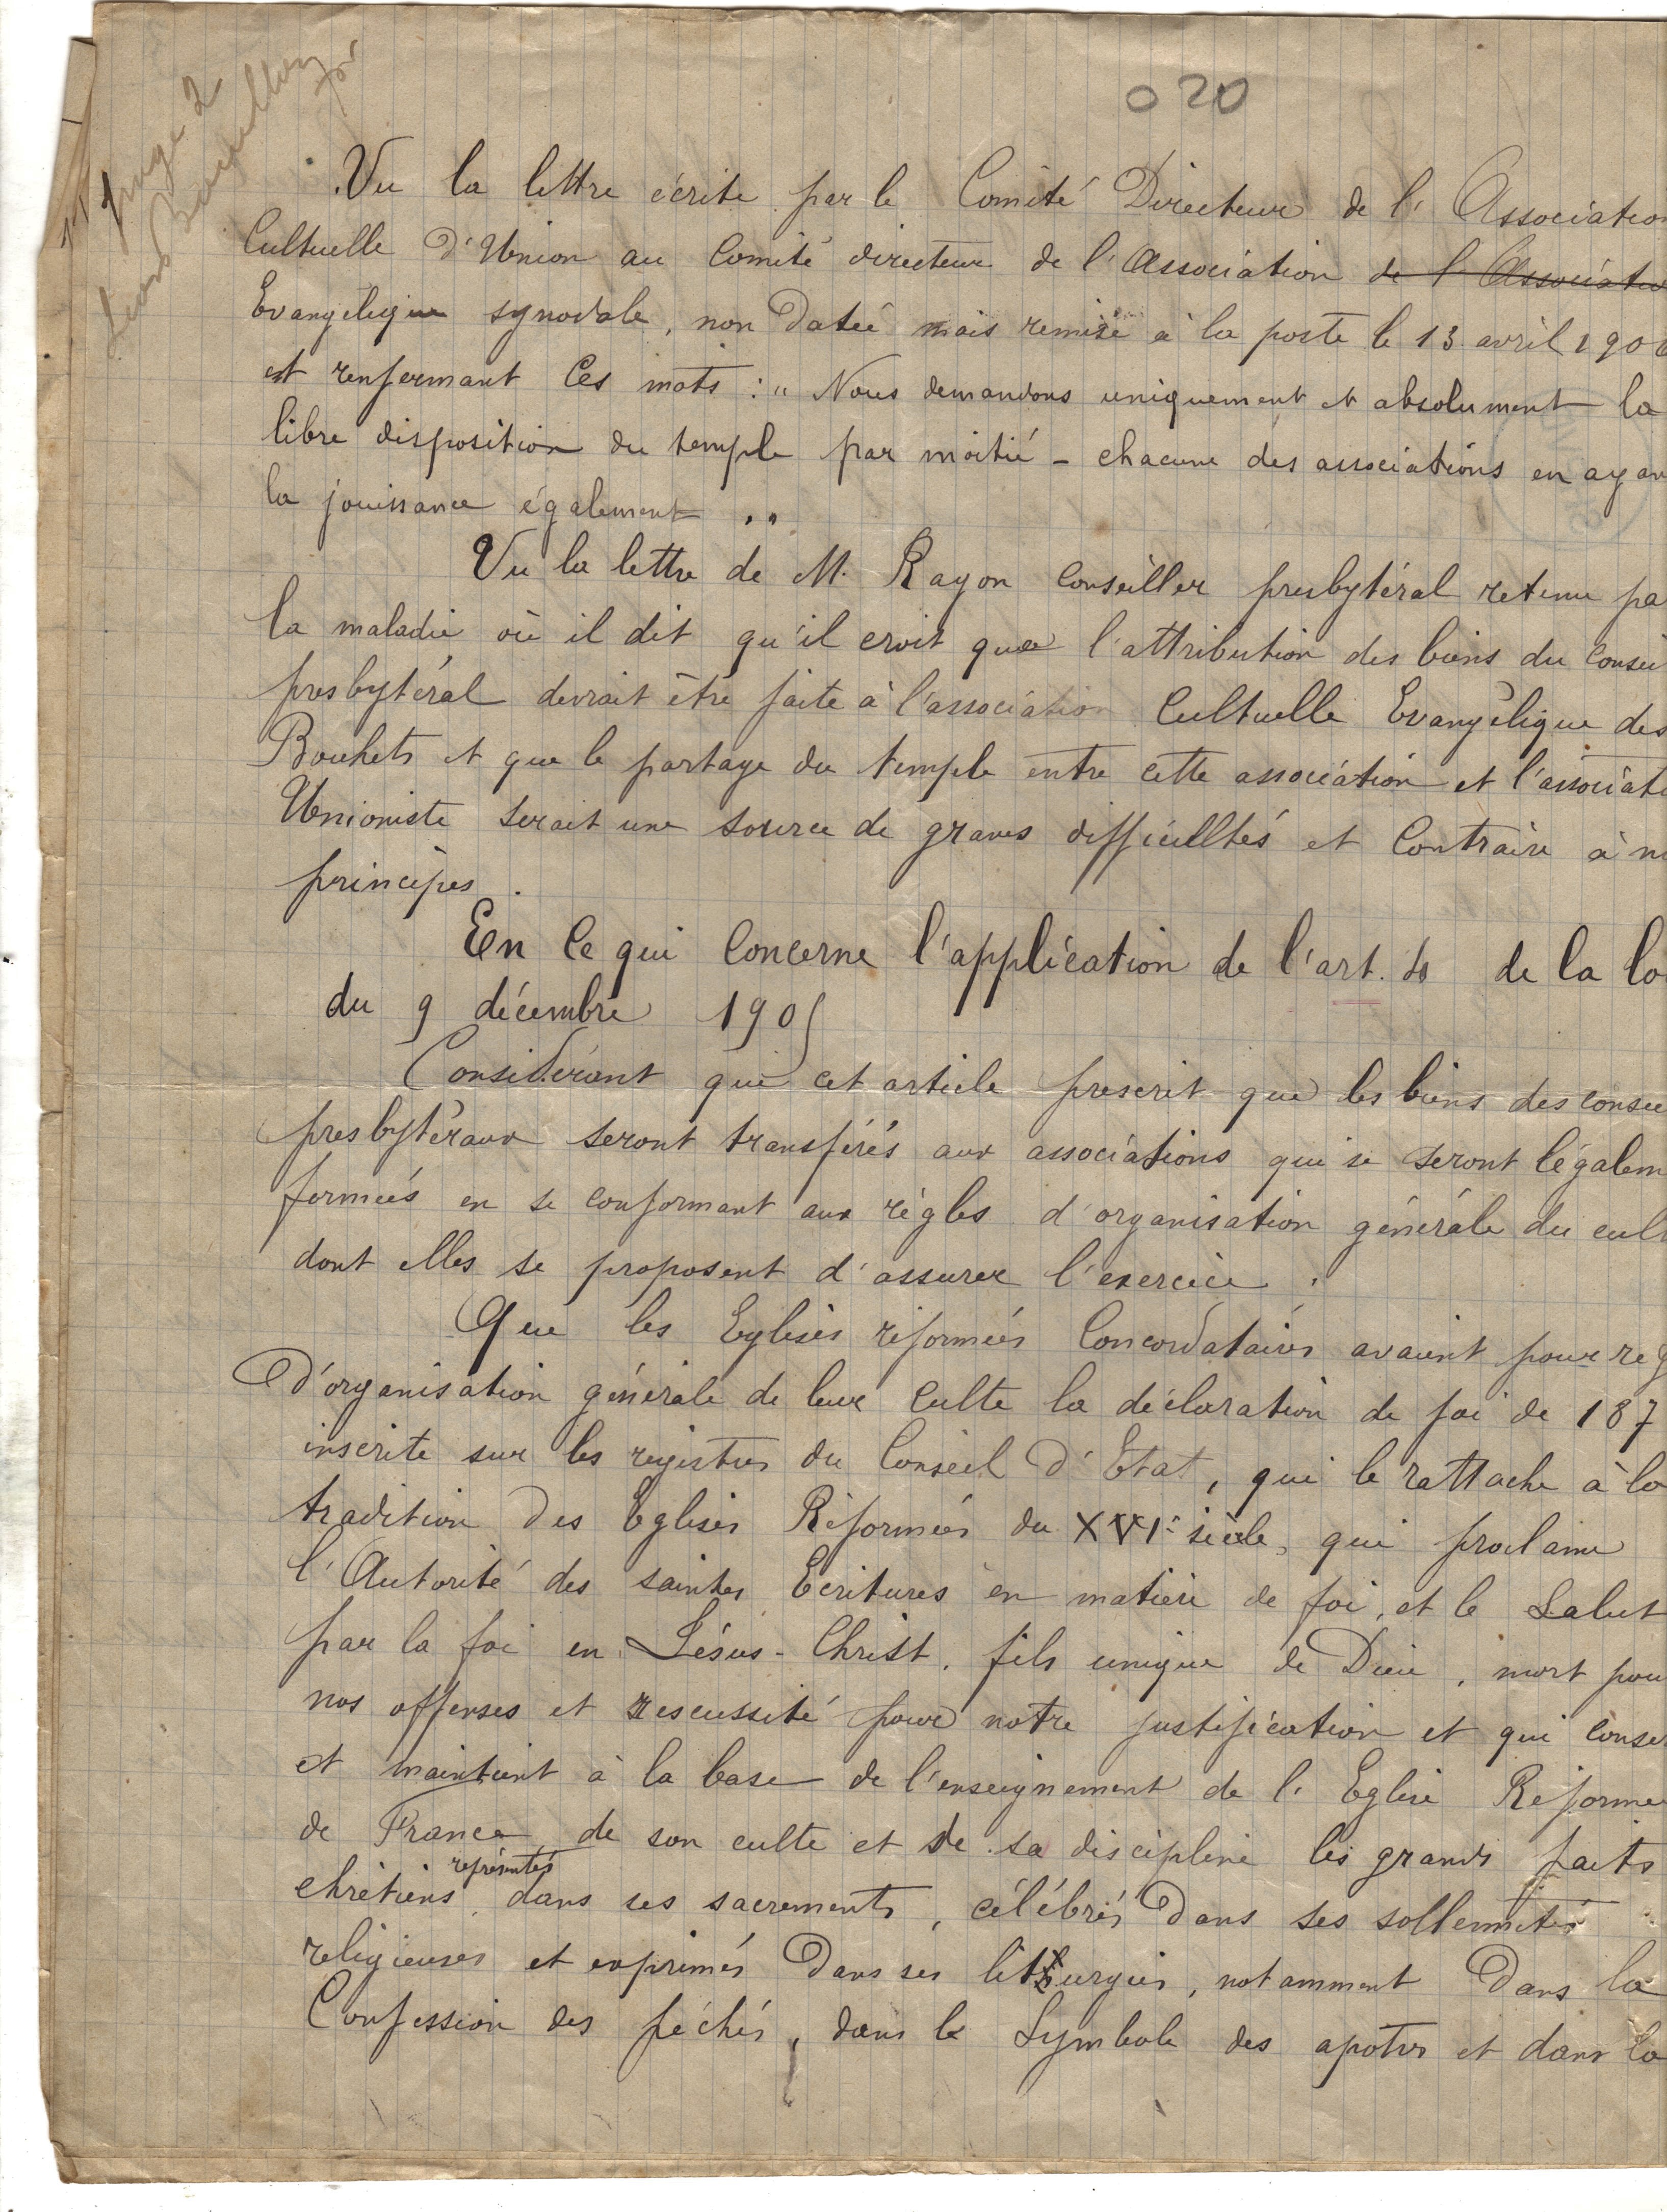 020
page 2
Vu la lettre écrite par le Comité Directeur de l'Association
Cultuelle d'Union au Comité directeur de l'Association de l'Associatio
Evangélique synodale, non datée mais remise à la poste le 13 avril 190
et renfermant ces mots : " Nous demandons uniquement et absolument la
libre disposition du temple par moitié - chacune des associations en ayan
la jouissance également "
Vu la lettre de M. Rayon Conseiller presbytéral retenu pa
la maladie où il dit qu'il croit que l'attribution des biens du Consei
presbytéral devrait être faite à l'association Cultuelle Evangélique des
Bouhets et que le partage du temple entre cette association et l'associat
Unioniste serait une source de graves difficulltés et Contraire à n
principes.
En ce qui Concerne l'application de l'art. de la lo
du 9 décembre 1905
Considérant que cet article prescrit que les biens des consei
presbytéraux seront transférés aux associations qui se seront légalem
formées en se conformant aux règles d'organisation générale du cul
dont elles se proposent d'assurer l'exercice.
Que les Eglises réformées Concordataires avaient pour reg
d'organisation générale de leur Culte la déclaration de foi de 187
inscrite sur les registres du Conseil d'Etat, qui le rattache à la
tradition des Eglises Réformées du XVIe siècle, qui proclame
l'Autorité des saintes Ecritures en matière de foi, et le Salut
par la foi en Jésus-Christ, fils unique de Dieu, mort pou
nos offenses et rescussité pour notre justification et qui conser
et maintient à la base de l'enseignement de l'Eglise Réformé
de France, de son culte et de sa discipline les grands faits
chrétiens représentés dans ses sacrements, célébrés dans ses sollennités
religieuses et exprimés dans ses liturgies, notamment dans la
Confession des péchés, dans le Symbole des apotres et dans la